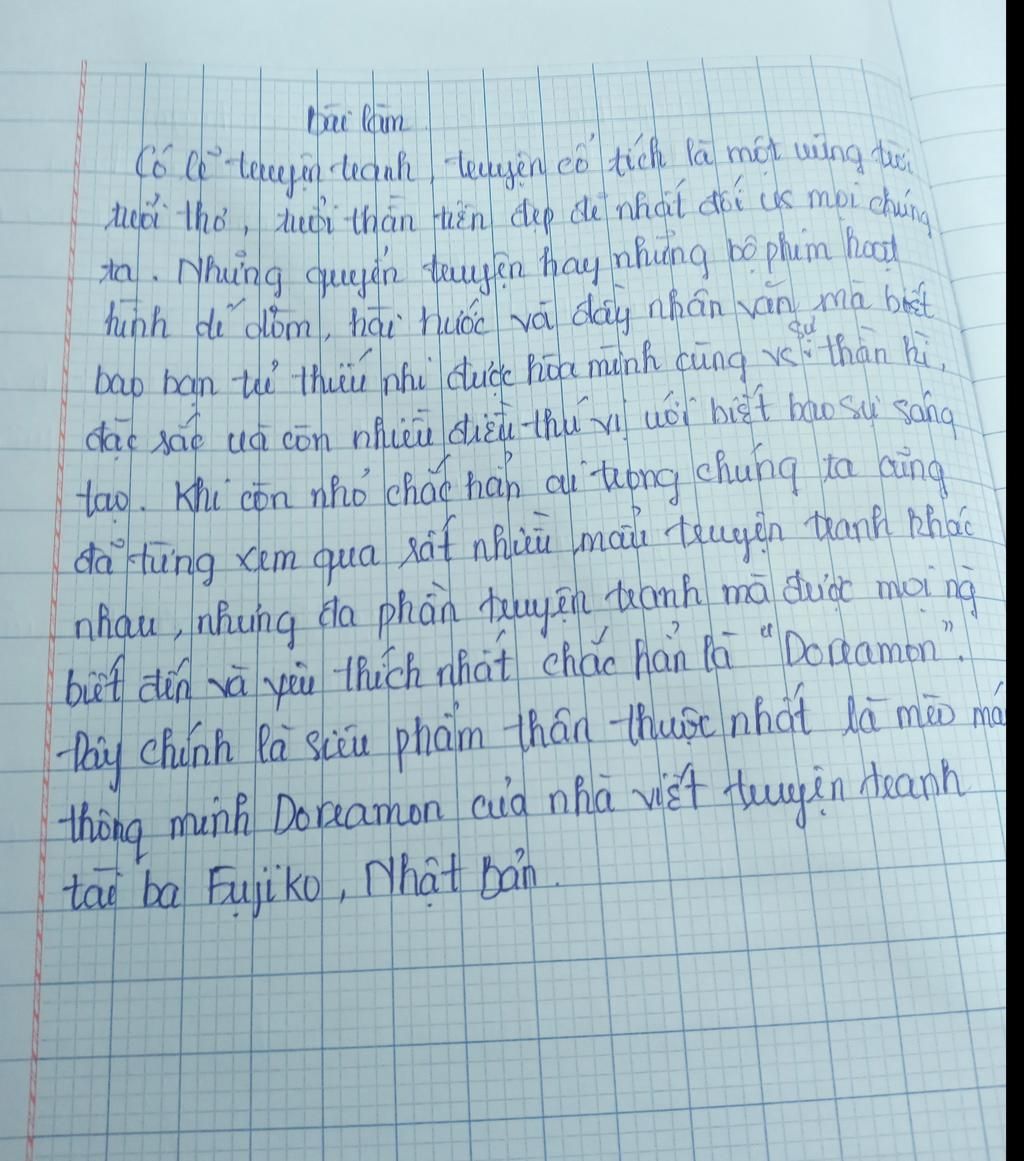 Bài làm
Có lẽ truyện tranh, truyện cổ tích là một vùng trời
tuổi thơ, tuổi thần tiên đẹp đẽ nhất đối vs mọi chúng
ta. Những quyển truyện hay những bộ phim hoạt
hình dí dỏm, hài hước và đầy nhân văn mà biết
bao bạn trẻ thiếu nhi được hòa mình cùng vs sự thần kì,
đặc sắc và còn nhiều điều thú vị với biết bao sự sáng
tạo. Khi còn nhỏ chắc hẳn ai trong chúng ta cũng
đã từng xem qua rất nhiều mẩu truyện tranh khác
nhau, nhưng đa phần truyện tranh mà được mọi ng
biết đến và yêu thích nhất chắc hẳn là "Doreamon".
Đây chính là siêu phẩm thân thuộc nhất là mèo má
thông minh Doreamon của nhà viết truyện tranh
tài ba Fujiko, Nhật Bản.